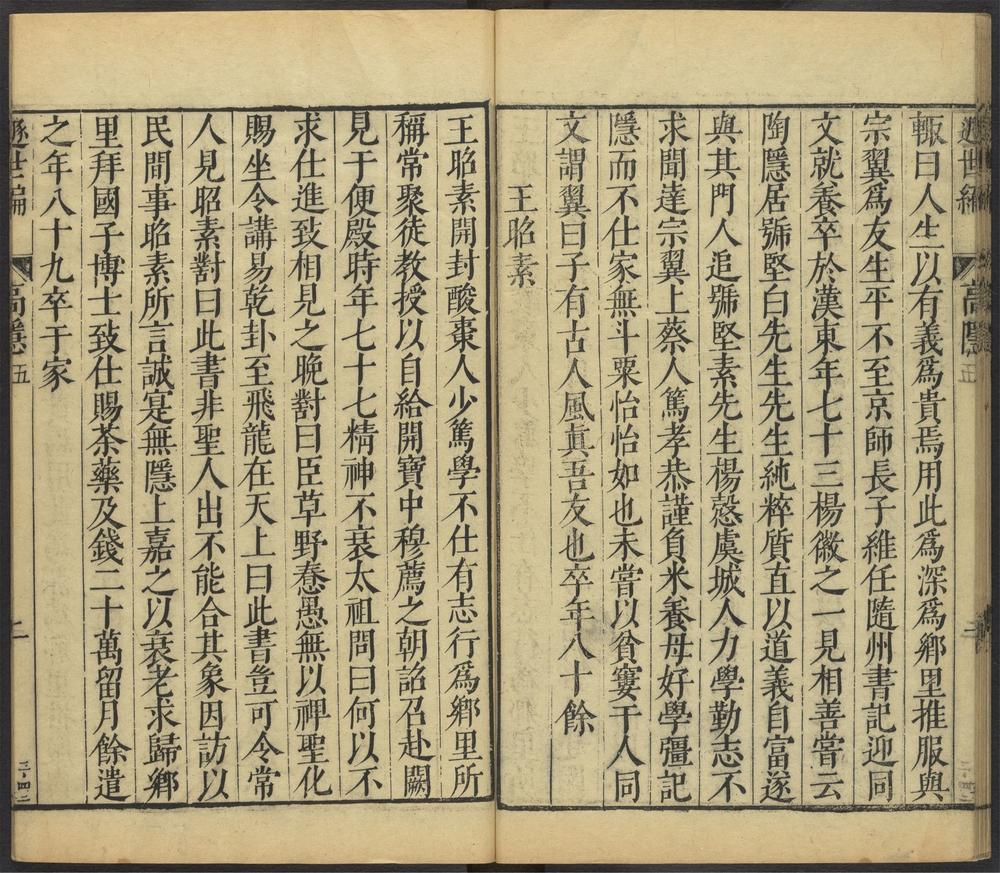 遯世編
高隱五
二
三·四二
輙曰人生以有義為貴焉用此為深為鄉里推服與
宗翼為友生平不至京師長子維任隨州書記迎同
文就養卒於漢東年七十三楊徽之一見相善嘗云
陶隱居號堅白先生先生純粹質直以道義自富遂
與其門人追號堅素先生楊慤虞城人力學勤志不
求聞達宗翼上蔡人篤孝恭謹負米養母好學彊記
隱而不仕家無斗粟怡怡如也未嘗以貧窶干人同
文謂翼曰子有古人風真吾友也卒年八十餘
王昭素
王昭素開封酸棗人少篤學不仕有志行為鄉里所
稱常聚徒教授以自給開寶中穆薦之朝詔召赴闕
見于便殿時年七十七精神不衰太祖問曰何以不
求仕進致相見之晚對曰臣草野惷愚無以禆聖化
賜坐令講易乾卦至飛龍在天上曰此書豈可令常
人見昭素對曰此書非聖人出不能合其象因訪以
民間事昭素所言誠寔無隱上嘉之以衰老求歸鄉
里拜國子博士致仕賜茶藥及錢二十萬留月餘遣
之年八十九卒于家
遯世編
高隱五
二
三·四二